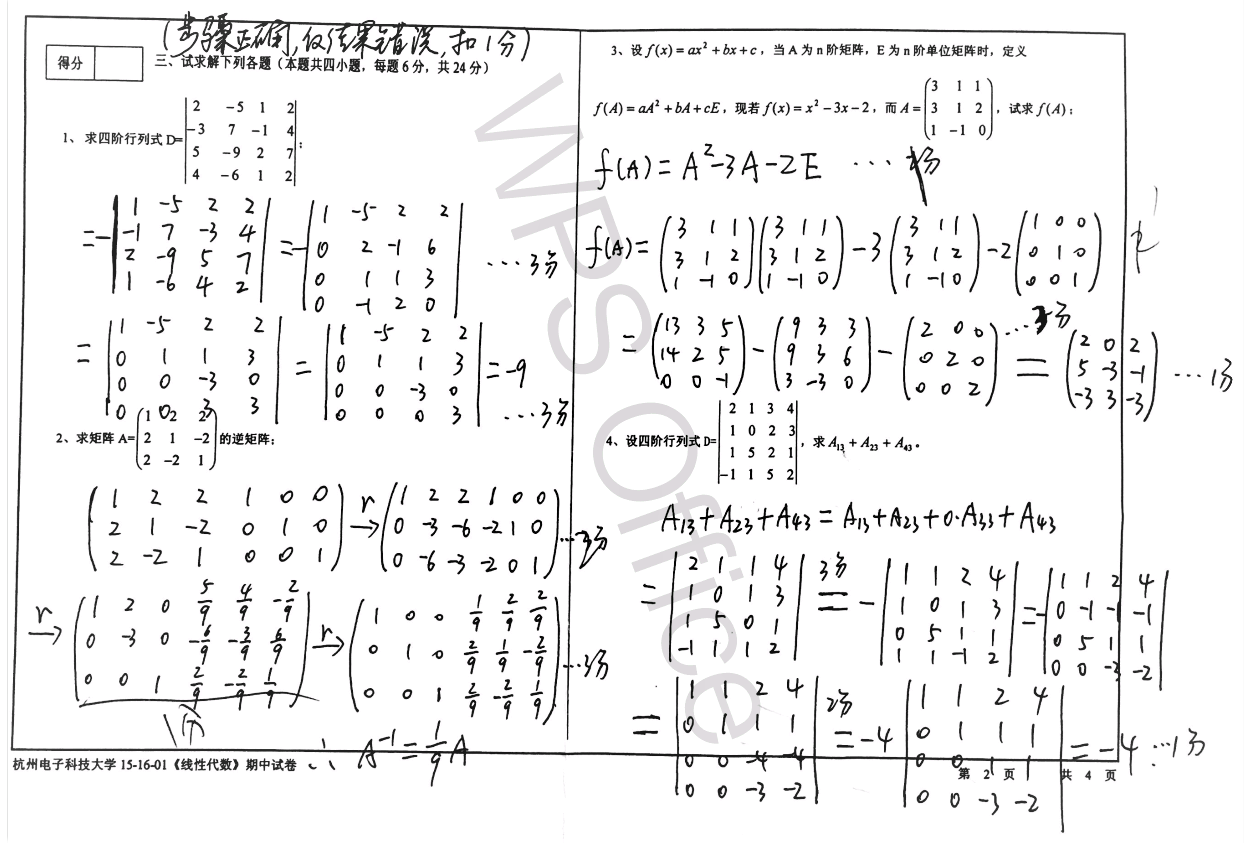 (步骤正确,仅结果错误,扣1分)
得分
三、试求解下列各题（本题共四小题，每题6分，共24分）
1、 求四阶行列式 D=
2 -5 1 2
-3 7 -1 4
5 -9 2 7
4 -6 1 2
;
= -
1 -5 2 2
-1 7 -3 4
2 -9 5 7
1 -6 4 2
= -
1 -5 2 2
0 2 -1 6
0 1 1 3
0 -1 2 0
…3分
=
1 -5 2 2
0 1 1 3
0 0 -3 0
0 0 3 3
=
1 -5 2 2
0 1 1 3
0 0 -3 0
0 0 0 3
= -9
…3分
2、求矩阵 A=
1 2 2
2 1 -2
2 -2 1
的逆矩阵;
1 2 2 1 0 0
2 1 -2 0 1 0
2 -2 1 0 0 1
r→
1 2 2 1 0 0
0 -3 -6 -2 1 0
0 -6 -3 -2 0 1
…3分
r→
1 2 0 5/9 4/9 -2/9
0 -3 0 -6/9 -3/9 6/9
0 0 1 2/9 -2/9 1/9
r→
1 0 0 1/9 2/9 2/9
0 1 0 2/9 1/9 -2/9
0 0 1 2/9 -2/9 1/9
…3分
∴ A⁻¹ = 1/9 A
杭州电子科技大学 15-16-01《线性代数》期中试卷
3、设 f(x) = ax² + bx + c，当 A 为 n 阶矩阵，E 为 n 阶单位矩阵时，定义
f(A) = aA² + bA + cE，现若 f(x) = x² - 3x - 2，而 A =
3 1 1
3 1 2
1 -1 0
，试求 f(A)；
f(A) = A² - 3A - 2E …分
f(A) =
3 1 1
3 1 2
1 -1 0
3 1 1
3 1 2
1 -1 0
- 3
3 1 1
3 1 2
1 -1 0
- 2
1 0 0
0 1 0
0 0 1
=
13 3 5
14 2 5
0 0 -1
-
9 3 3
9 3 6
3 -3 0
-
2 0 0
0 2 0
0 0 2
…分
=
2 0 2
5 -3 -1
-3 3 -3
…1分
4、设四阶行列式 D=
2 1 3 4
1 0 2 3
1 5 2 1
-1 1 5 2
，求 A₁₃ + A₂₃ + A₄₃。
A₁₃ + A₂₃ + A₄₃ = A₁₃ + A₂₃ + 0·A₃₃ + A₄₃
=
2 1 1 4
1 0 1 3
1 5 0 1
-1 1 1 2
3分
= -
1 1 2 4
1 0 1 3
0 5 1 1
1 1 -1 2
= -
1 1 2 4
0 -1 -1 -1
0 5 1 1
0 0 -3 -2
=
1 1 2 4
0 1 1 1
0 0 -4 -4
0 0 -3 -2
2分
= -4
1 1 2 4
0 1 1 1
0 0 1 1
0 0 -3 -2
= -4 …1分
第 2 页 共 4 页
WPS Office